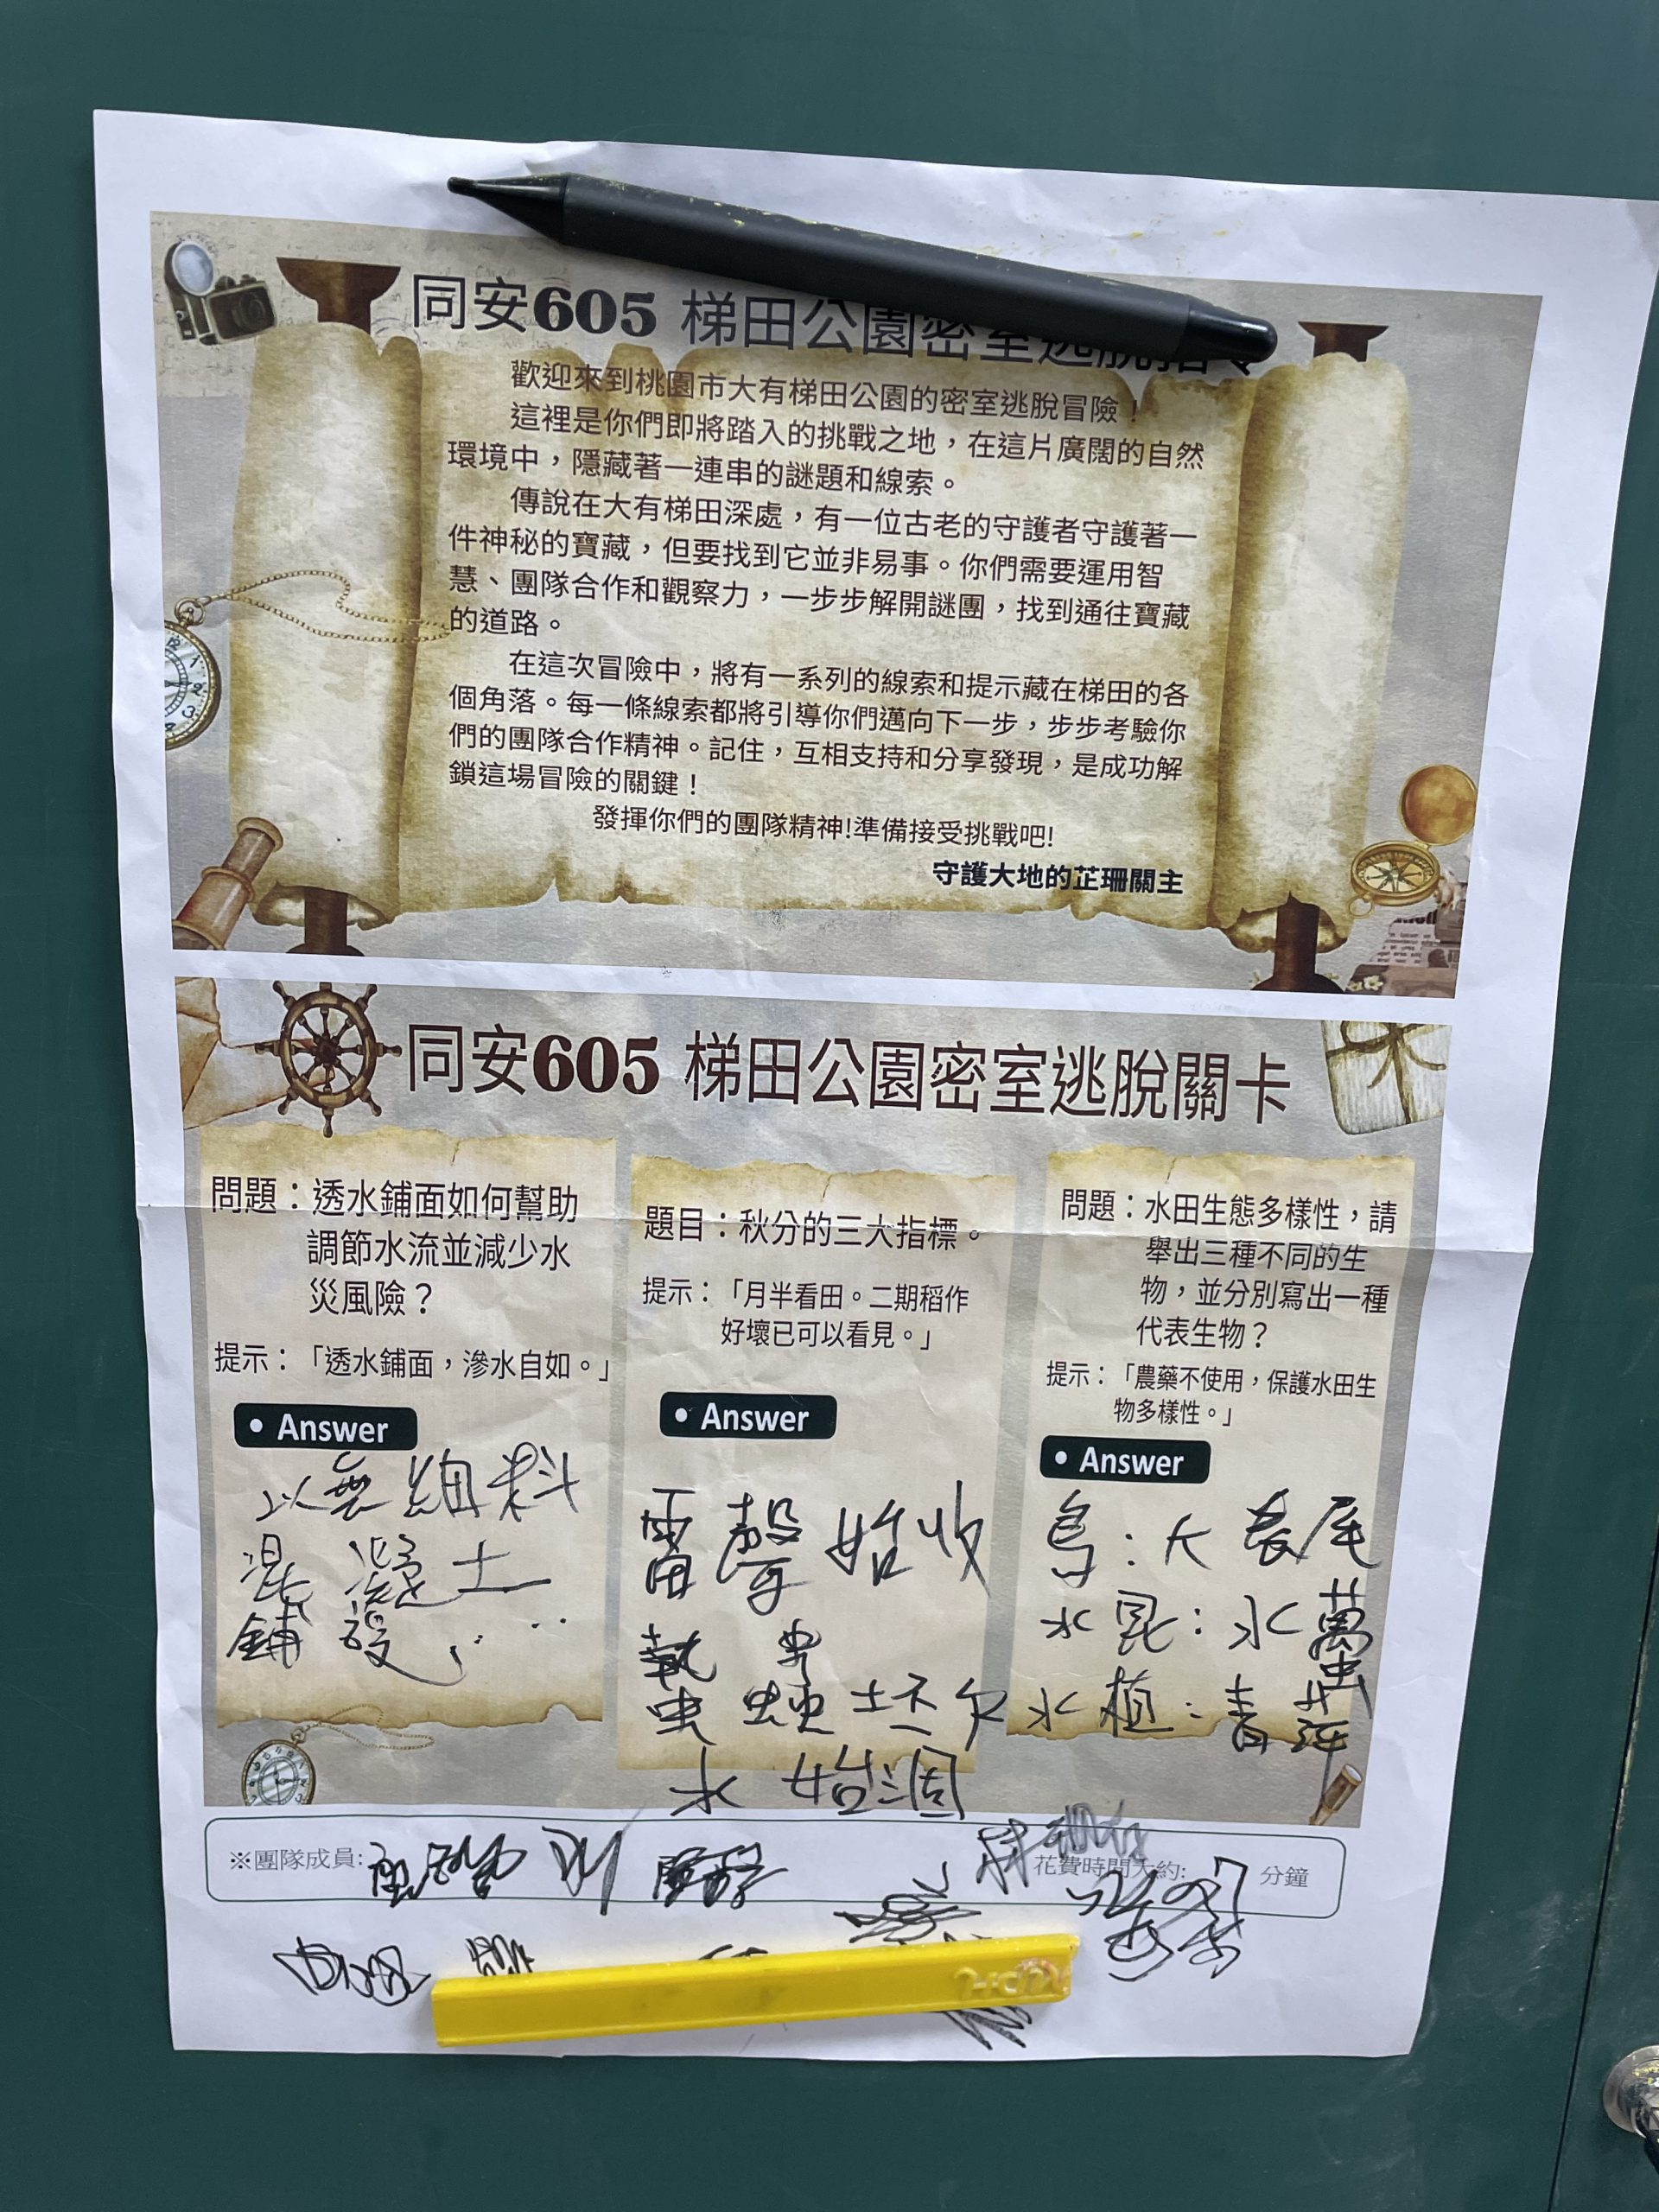 同安605 梯田公園密室逃脫指令
歡迎來到桃園市大有梯田公園的密室逃脫冒險！
這裡是你們即將踏入的挑戰之地，在這片廣闊的自然
環境中，隱藏著一連串的謎題和線索。
傳說在大有梯田深處，有一位古老的守護者守護著一
件神秘的寶藏，但要找到它並非易事。你們需要運用智
慧、團隊合作和觀察力，一步步解開謎團，找到通往寶藏
的道路。
在這次冒險中，將有一系列的線索和提示藏在梯田的各
個角落。每一條線索都將引導你們邁向下一步，步步考驗你
們的團隊合作精神。記住，互相支持和分享發現，是成功解
鎖這場冒險的關鍵！
發揮你們的團隊精神!準備接受挑戰吧!
守護大地的芷珊關主
同安605 梯田公園密室逃脫關卡
問題：透水鋪面如何幫助
調節水流並減少水
災風險？
提示：「透水鋪面，滲水自如。」
• Answer
以無細料
混凝土
鋪設
題目：秋分的三大指標。
提示：「月半看田。二期稻作
好壞已可以看見。」
• Answer
雷聲始收
蟄虫坯户
水始涸
問題：水田生態多樣性，請
舉出三種不同的生
物，並分別寫出一種
代表生物？
提示：「農藥不使用，保護水田生
物多樣性。」
• Answer
鳥：大卷尾
水昆：水蠆
水植：青萍
※團隊成員:
花費時間大約:
分鐘